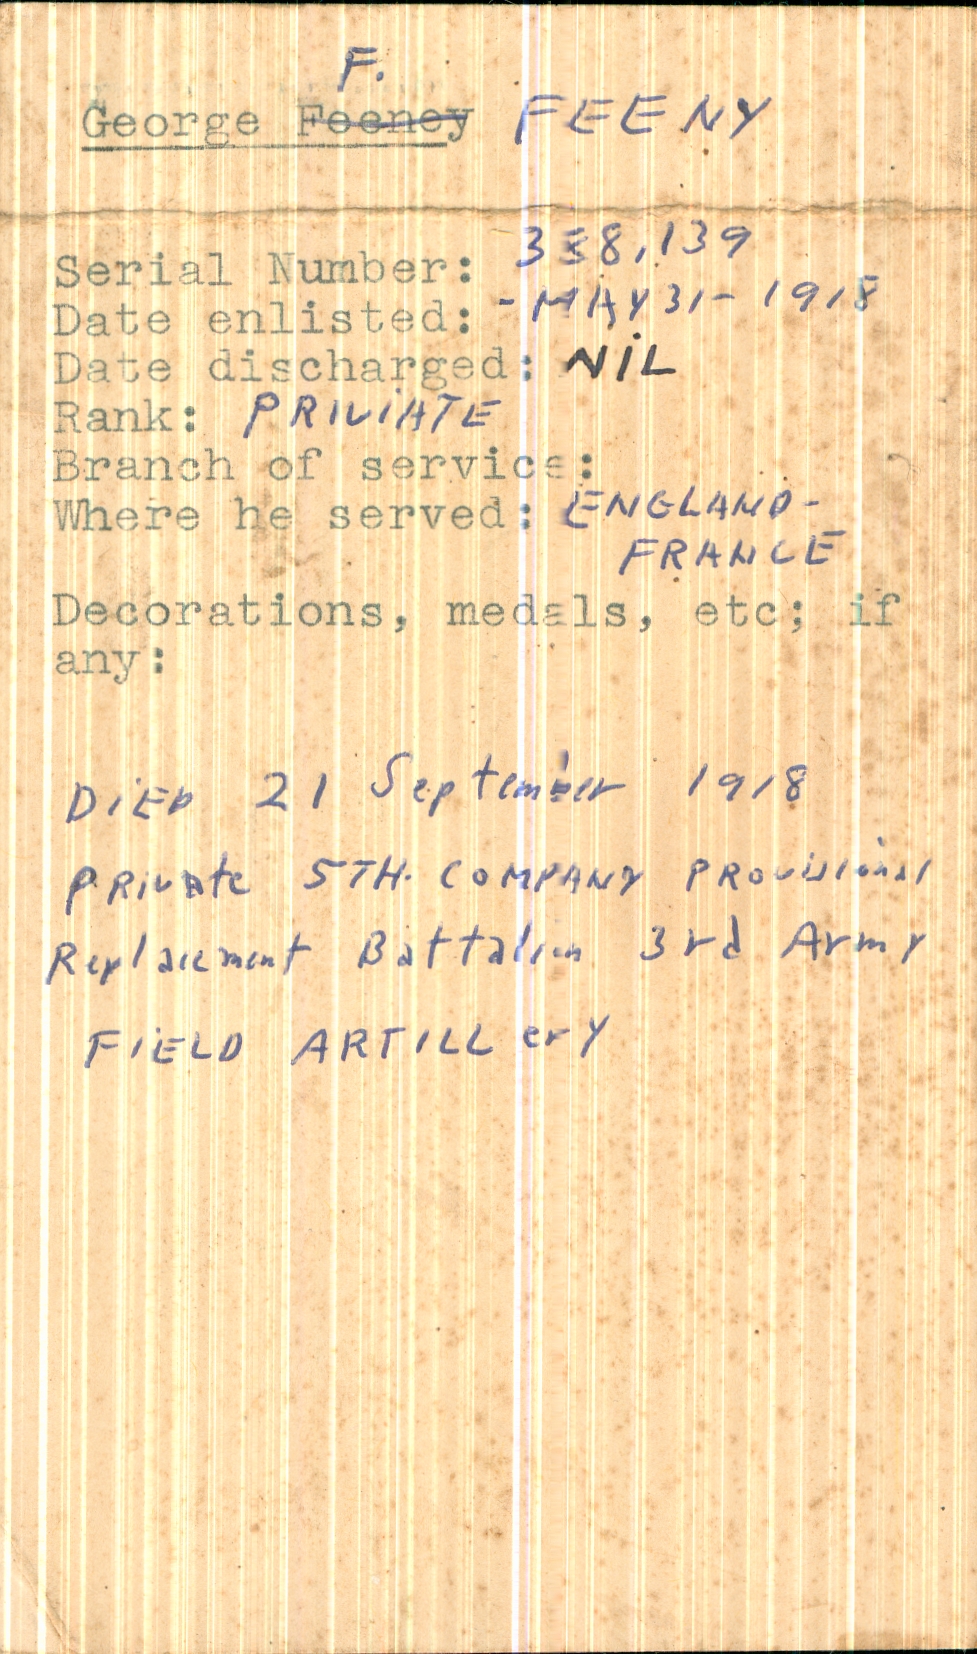 F.
George Feeney FEENY
Serial Number: 338,139
Date enlisted: - MAY 31 - 1918
Date discharged: NIL
Rank: PRIVATE
Branch of service:
Where he served: ENGLAND -
FRANCE
Decorations, medals, etc; if
any:
DIED 21 September 1918
PRIVate 5TH. COMPANY PROVISIonal
Replacement Battalion 3rd Army
FIELD ARTILLery